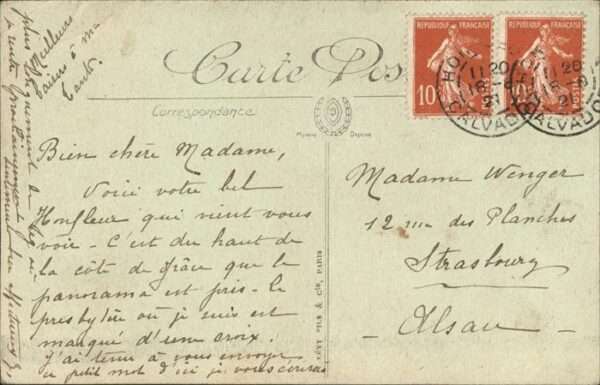 Meilleurs
baisers à ma
tante.
Carte Pos
Correspondance
RÉPUBLIQUE FRANÇAISE
10
POSTES
RÉPUBLIQUE FRANÇAISE
10
POSTES
HON
11 20
18-9
21
CALVADOS
HONFLEUR
11 20
18-9
21
CALVADOS
Marque Déposée
Bien chère Madame,
Voici votre bel
Honfleur qui vient vous
voir - C'est du haut de
la côte de Grâce que le
panorama est pris - le
presbytère où je suis est
marqué d'une croix.
J'ai tenu à vous envoyer
ce petit mot d'ici je vous écrirai
plus longuement de
LÉVY FILS & Cie, PARIS
Madame Wenger
12 rue des Planches
Strasbourg
- Alsace -